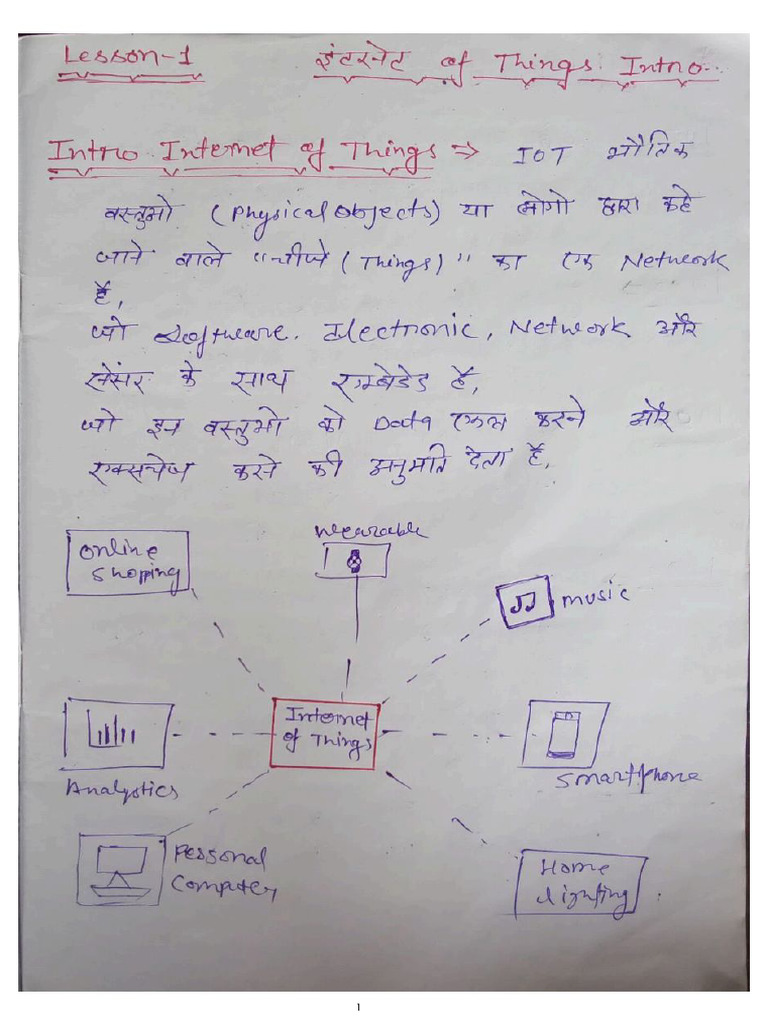 Lesson-1 इंटरनेट of Things Intro..
Intro Internet of Things => IOT भौतिक
वस्तुओ (Physical Objects) या लोगो द्वारा कहे
जाने वाले "चीजे (Things)" का एक Network
है,
जो Software, Electronic, Network और
सेंसर के साथ एम्बेडेड है,
जो इन वस्तुओ को Data एकत्र करने और
एक्सचेंज करने की अनुमति देता है,
wearable
Online
Shopping
music
Internet
of Things
Analytics
Smartphone
Personal
Computer
Home
Lighting
1